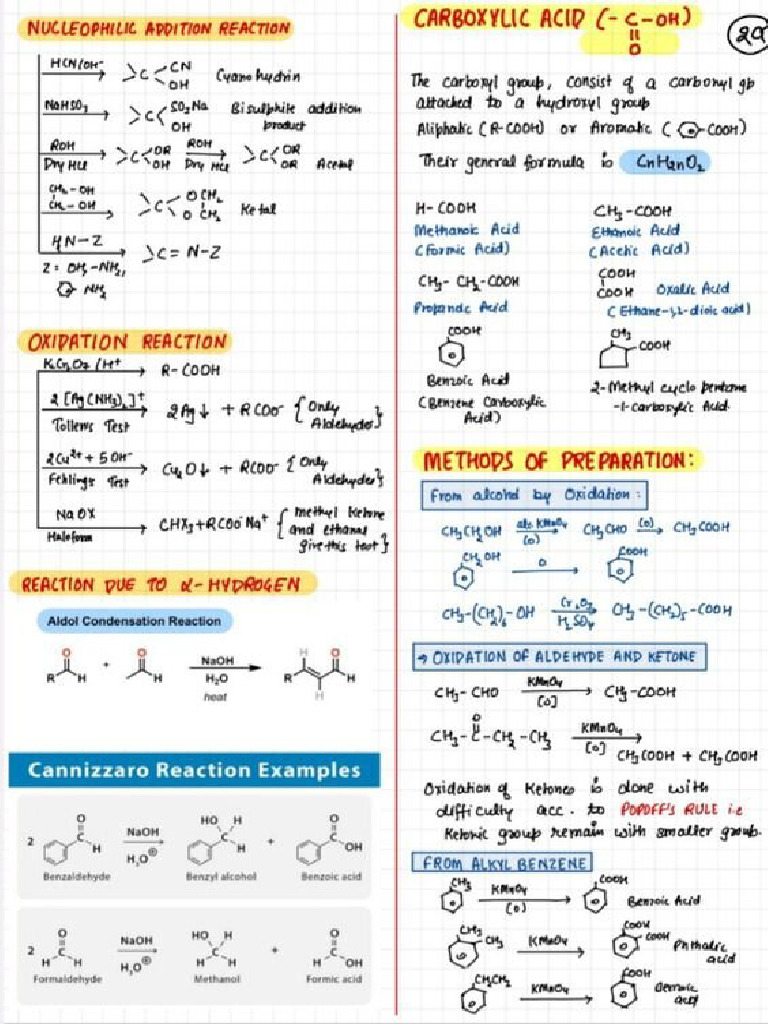 NUCLEOPHILIC ADDITION REACTION
HCN/OH⁻
>C< CN
OH
Cyanohydrin
NaHSO₃
>C< SO₃Na
OH
Bisulphite addition
product
ROH
Dry HCl
>C< OR
OH
ROH
Dry HCl
>C< OR
OR
Acetal
CH₂-OH
CH₂-OH
>C< OCH₂
OCH₂
Ketal
HN-Z
>C=N-Z
Z = OH, -NH₂,
NH₂
OXIDATION REACTION
K₂Cr₂O₇/H⁺
R-COOH
2[Ag(NH₃)₂]⁺
Tollens Test
2Ag↓ + RCOO⁻ {Only
Aldehydes}
2Cu²⁺ + 5OH⁻
Fehlings Test
Cu₂O↓ + RCOO⁻ {Only
Aldehydes}
NaOX
Haloform
CHX₃+RCOO⁻Na⁺ {methyl Ketone
and ethanal
give this test}
REACTION DUE TO α-HYDROGEN
Aldol Condensation Reaction
O O H O
R H + H NaOH R H
H₂O H
heat
Cannizzaro Reaction Examples
O HO H O
2 H NaOH C + C OH
H₃O⊕
Benzaldehyde Benzyl alcohol Benzoic acid
O HO H O
2 H C H NaOH H C H + H C OH
H₃O⊕
Formaldehyde Methanol Formic acid
CARBOXYLIC ACID (-C-OH)
O
The carboxyl group, consist of a carbonyl gp
attached to a hydroxyl group
Aliphatic (R-COOH) or Aromatic ( -COOH)
Their general formula is CnH2nO₂
H-COOH CH₃-COOH
Methanoic Acid Ethanoic Acid
(Formic Acid) (Acetic Acid)
CH₃-CH₂-COOH COOH
COOH Oxalic Acid
Propanoic Acid (Ethane-1,2-dioic acid)
COOH CH₃
COOH
Benzoic Acid 2-Methyl cyclo pentane
(Benzene Carboxylic -1-carboxylic Acid
Acid)
METHODS OF PREPARATION:
From alcohol by Oxidation:
CH₃CH₂OH alk KMnO₄ CH₃CHO (O) CH₃COOH
(O)
CH₂OH O COOH
CH₃-(CH₂)₅-OH H₂SO₄ CH₃-(CH₂)₅-COOH
→ OXIDATION OF ALDEHYDE AND KETONE
CH₃-CHO KMnO₄ CH₃-COOH
[O]
O
CH₃-C-CH₂-CH₃ KMnO₄
[O] CH₃COOH + CH₃COOH
Oxidation of Ketones is done with
difficulty acc. to POPOFF'S RULE i.e
Ketonic group remain with smaller group.
FROM ALKYL BENZENE
CH₃ KMnO₄ COOH Benzoic Acid
(O)
CH₃ CH₃ KMnO₄ COOH COOH Phthalic
acid
KMnO₄ COOH
acid